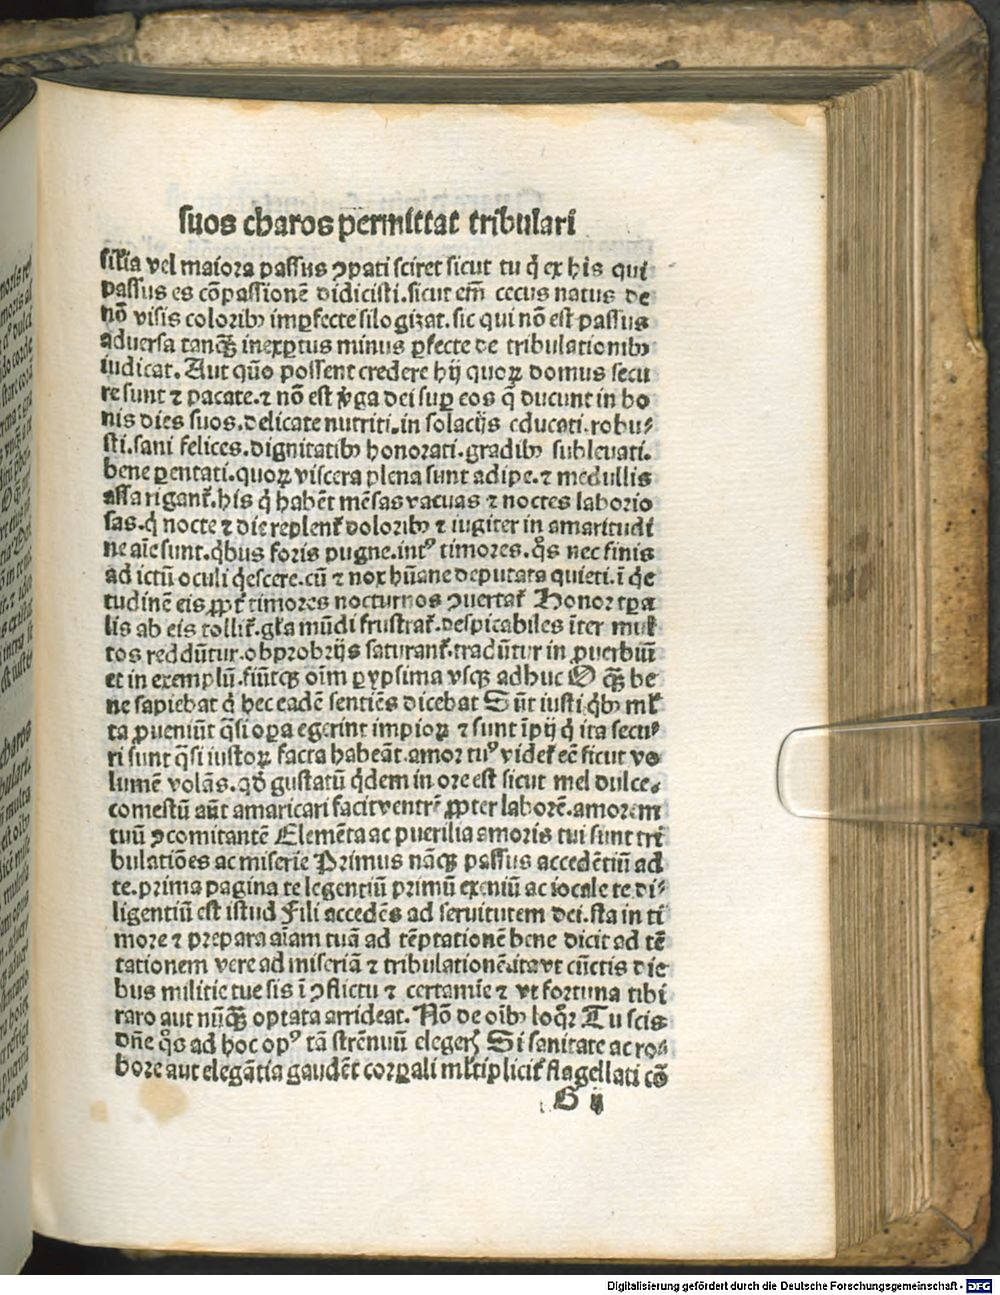 suos charos permittat tribulari
silia vel maiora passus ↄpati sciret sicut tu q̇ ex his qui
passus es cōpassionē didicisti.sicut em̄ cecus natus de
nō visis coloribꝫ imꝑfecte silogizat.sic qui nō est passus
aduersa tanqꝫ̄ inexꝑtus minus ꝑfecte de tribulationibꝫ
iudicat. Aut quō possent credere hij quoꝝ domus secu
re sunt ⁊ pacate.⁊ nō est v̇ga dei suꝑ eos q̄ ducunt in bo
nis dies suos.delicate nutriti.in solacijs educati.robu⸗
sti.sani felices.dignitatibꝫ honorati.gradibꝫ subleuati.
bene ꝑentati.quoꝝ viscera plena sunt adipe.⁊ medullis
ossa rigant᷑.his q̇ habēt mēsas vacuas ⁊ noctes laborio
sas.q̇ nocte ⁊ die replent᷑ doloribꝫ ⁊ iugiter in amaritudi
ne aīe sunt.q̇bus foris pugne.intꝰ timores.q̊s nec finis
ad ictū oculi q̇escere.cū ⁊ nox hūane deputata quieti.ī q̇e
tudinē eis ꝓpt᷑ timores nocturnos ↄuertat᷑ Honor tꝑa
lis ab eis tollit᷑.gl̄a mūdi frustrat᷑.despicabiles īter mul
tos reddūtur.obprobrijs saturant᷑.tradūtur in ꝓuerbiū
et in exemplū.fiūtqꝫ oīm ꝑipsima vsqꝫ adhuc O qꝫ̄ be
ne sapiebat q̇ hec eadē sentiēs dicebat Sūt iusti q̇bꝫ ml̄
ta ꝓueniūt q̄si oꝑa egerint impioꝝ ⁊ sunt īpij q̇ ita secu⸗
ri sunt q̄si iustoꝝ facta habeāt.amor tuꝰ videt᷑ eē sicut vo
lumē volās.qd̄ gustatū q̇dem in ore est sicut mel dulce.
comestū aūt amaricari facit ventrē ꝓpter laborē.amorem
tuū ↄcomitantē Elemēta ac puerilia amoris tui sunt tri
bulatiōes ac miserie Primus nāqꝫ passus accedētiū ad
te.prima pagina te legentiū primū exeniū ac iocale te di⸗
ligentiū est istud Fili accedēs ad seruitutem dei.sta in ti
more ⁊ prepara aīam tuā ad tēptationē bene dicit ad tē
tationem vere ad miseriā ⁊ tribulationē.ita vt cūctis die
bus militie tue sis ī ↄflictu ⁊ certamīe ⁊ vt fortuna tibi
raro aut nūqꝫ̄ optata arrideat. Nō de oībꝫ loq̊r Tu scis
dn̄e q̊s ad hoc opꝰ tā strēnuū elegeris Si sanitate ac ro⸗
bore aut elegātia gaudēt corꝑali ml̄tiplicit᷑ flagellati cō
G ij
Digitalisierung gefördert durch die Deutsche Forschungsgemeinschaft - DFG